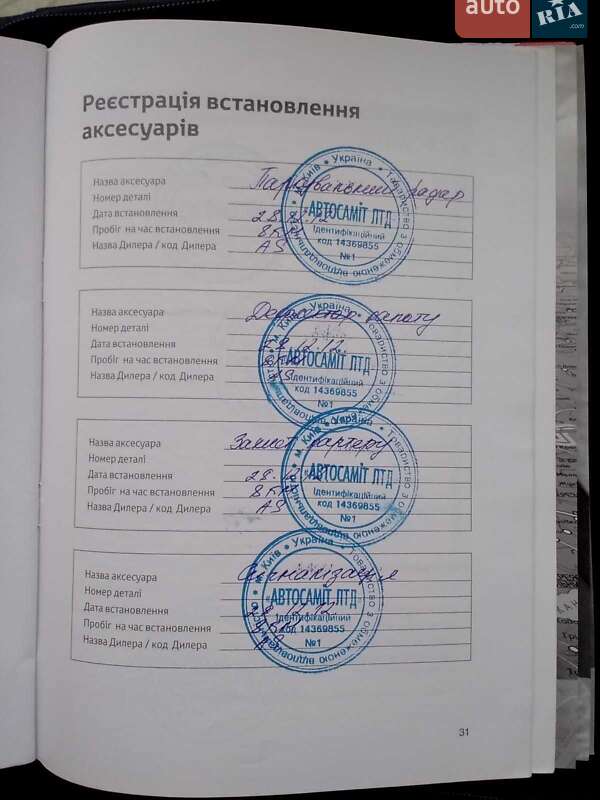 auto RIA.com
Реєстрація встановлення
аксесуарів
Назва аксесуара Паркувальний радар
Номер деталі
Дата встановлення 28.12.12
Пробіг на час встановлення 8 км
Назва Дилера / код Дилера AS
Україна • Товариство з обмеженою відповідальністю • м. Київ •
«АВТОСАМІТ ЛТД»
Ідентифікаційний
код 14369855
№1
Назва аксесуара Дефлектор капоту
Номер деталі
Дата встановлення 28.12.12
Пробіг на час встановлення
Назва Дилера / код Дилера AS
Україна • Товариство з обмеженою відповідальністю • м. Київ •
«АВТОСАМІТ ЛТД»
Ідентифікаційний
код 14369855
№1
Назва аксесуара Захист картеру
Номер деталі
Дата встановлення 28.12.12
Пробіг на час встановлення 8 км
Назва Дилера / код Дилера AS
Україна • Товариство з обмеженою відповідальністю • м. Київ •
«АВТОСАМІТ ЛТД»
Ідентифікаційний
код 14369855
№1
Назва аксесуара Сигналізація
Номер деталі
Дата встановлення
Пробіг на час встановлення
Назва Дилера / код Дилера
Україна • Товариство з обмеженою відповідальністю • м. Київ •
«АВТОСАМІТ ЛТД»
Ідентифікаційний
код 14369855
№1
31